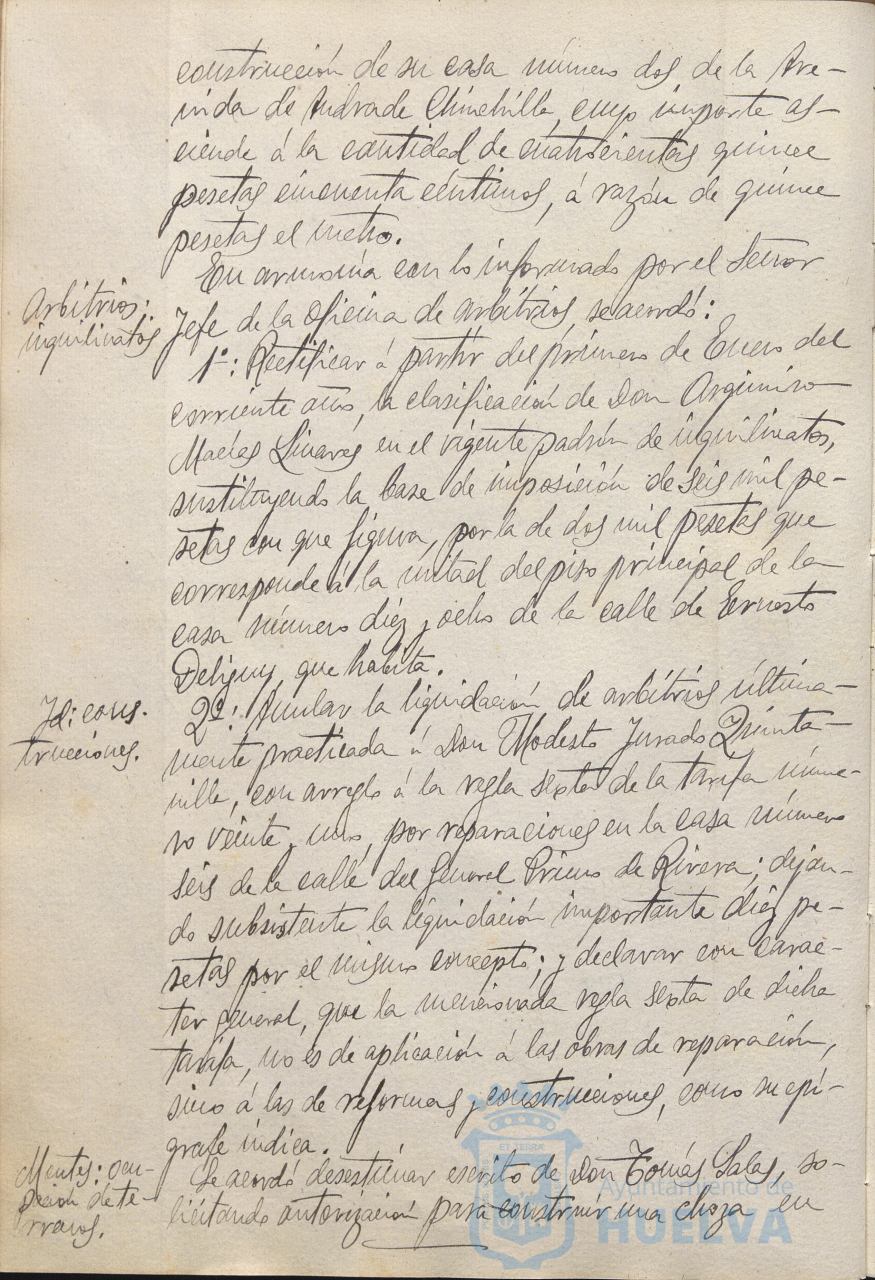 construcción de su casa número dos de la Ave-
nida de Andrade Chinchilla, cuyo importe as-
ciende á la cantidad de cuatrocientas quince
pesetas cincuenta céntimos, á razón de quince
pesetas el metro.
En armonía con lo informado por el Señor
Arbitrios:
inquilinatos
Jefe de la Oficina de arbitrios se acordó:
1º: Rectificar á partir del primero de Enero del
corriente año, la clasificación de Don Argimiro
Macías Linares en el vigente padrón de inquilinatos,
sustituyendo la base de imposición de seis mil pe-
setas con que figura, por la de dos mil pesetas que
corresponde á la mitad del piso principal de la
casa número diez y ocho de la calle de Ernesto
Deligny, que habita.
Id: cons-
trucciones.
2º: Anular la liquidación de arbitrios última-
mente practicada á Don Modesto Jurado Quinta-
nilla, con arreglo á la regla sexta de la tarifa núme-
ro veinte y uno, por reparaciones en la casa número
seis de la calle del General Primo de Rivera; dejan-
do subsistente la liquidación importante diez pe-
setas por el mismo concepto; y declarar con carac-
ter general, que la mencionada regla sexta de dicha
tarifa, no es de aplicación á las obras de reparación,
sino á las de reformas y construcciones, como su epí-
grafe indica.
Montes: ocu-
pación de te-
rrenos.
Se acordó desestimar escrito de Don Tomás Salas, so-
licitando autorización para construir una choza en
ET TERRA
Ayuntamiento de
HUELVA